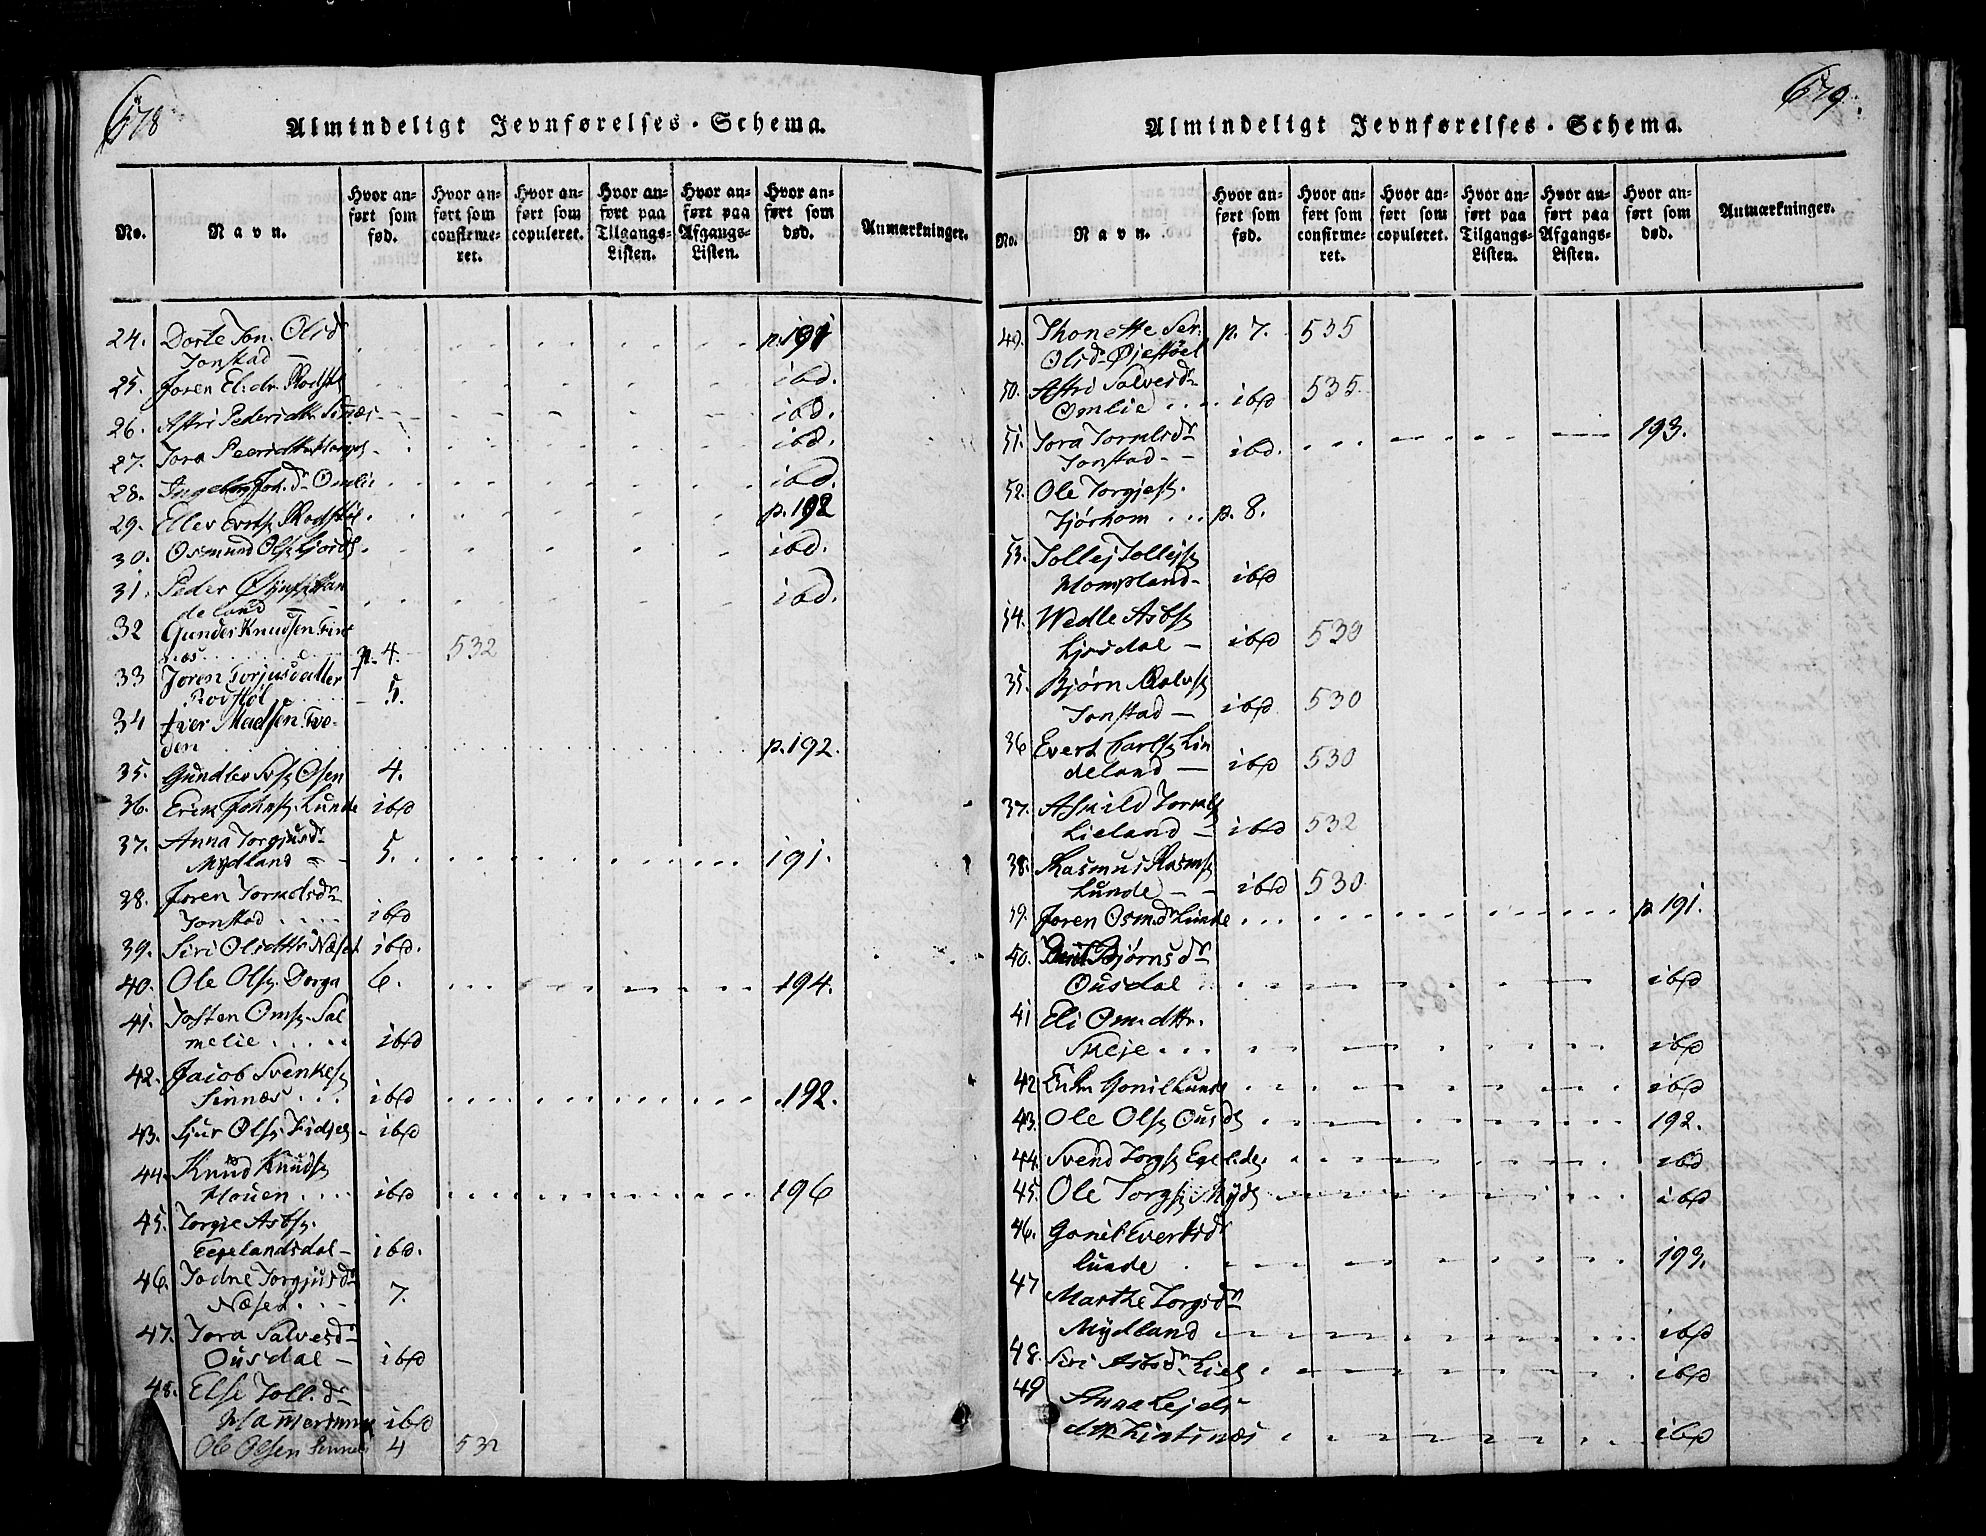 678
Almindeligt Jevnførelses-Schema.
No.
Navn.
Hvor anført som fød.
Hvor anført som confirmeret.
Hvor anført som copuleret.
Hvor anført paa Tilgangs-Listen.
Hvor anført paa Afgangs-Listen.
Hvor anført som død.
Anmærkninger.
24. Dorte Ton. Olsd
Tonstad p. 191
25. Joren El:dr. ibd.
26. Astri Pedersdttr. Sinnes ibd.
27. Tora ibd.
28. Ingeborg Joh. d. Omlie ibd.
29. Ellev p. 192
30. Osmund Ols. ibd.
31. Peder
deland ibd.
32 Gunder Knudsen Fint
næs p. 4. 532
33 Joren Torjusdatter
5.
34 Iver Madsen Tve-
den p. 192.
35. Gundlev Osen 4.
36. Erik Johns. Lunde ibd
37. Anna Torgjusdr
Mydland 5. 191.
38. Joren Tormodsdr
Tonstad ibd
39. Siri Olsdttr. Næset ibd.
40. Ole Ols. Dorga 6. 194.
41. Tosten Oms. Sal
melie ibd
42. Jacob Svenkes.
Sinnæs ibd 192.
43. Sjur Ols. Fidje ibd
44. Knud Knuds.
Houen ibd 196
45. Torgie Asbs.
Egelandsdal ibd.
46. Todne Torgjusdr
Næset 7.
47. Tora Salvesdr
Ousdal ibd
48. Else Toll. dr
ibd
Ole Olsen Sinnes 4 532
679.
Almindeligt Jevnførelses-Schema.
No.
Navn.
Hvor anført som fød.
Hvor anført som confirmeret.
Hvor anført som copuleret.
Hvor anført paa Tilgangs-Listen.
Hvor anført paa Afgangs-Listen.
Hvor anført som død.
Anmærkninger.
49. Thonette Ser.
Olsd. Øjestøel p. 7. 535
50. Astri Salvesdr
Omlie ibd 535
51. Tora Tormdsdr
Tonstad ibd. 193.
52. Ole Torgjes.
Tjørhom p. 8.
53. Tollej Tollejs.
Hompland ibd
54. Wedle Asbs.
Ljosdal ibd 530
35. Bjørn Salves.
Tonstad ibd 530
36 Evert Carls. Lin
deland ibd 530
37. Askild Tormds
Lieland ibd 532
38. Rasmus Rasms.
Lunde ibd 530
39. Joren Osm.dr Lunde p. 191.
40. Bjørnsdr
Ousdal ibd
41 Eli Om.dttr.
Skeje ibd
42 Gonil Lunde ibd
43. Ole Ols. Ousd. 192.
44. Svend Torgs. Egel.de. ibd
45. Ole Torgs. Myd. ibd
46. Gonil Evertsdr
Lunde 193.
47 Marthe Torgsdr
Mydland ibd
48. Siri Asbsdr. Liel. ibd
49 Anna Lejds
dttr. ibd